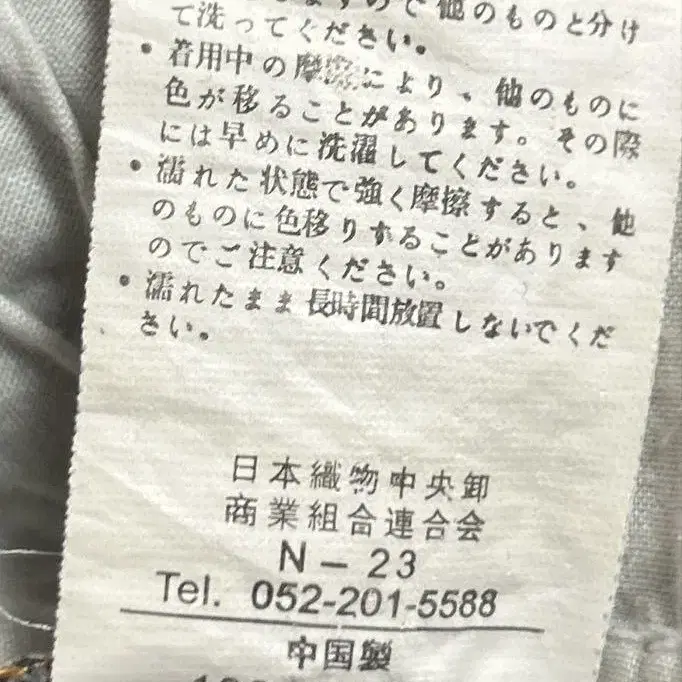 ますので他のものと分け
て洗ってください。
・着用中の摩擦により、他のものに
色が移ることがあります。その際
には早めに洗濯してください。
・濡れた状態で強く摩擦すると、他
のものに色移りすることがあります
のでご注意ください。
・濡れたまま長時間放置しないでくだ
さい。
日本織物中央卸
商業組合連合会
N-23
Tel. 052-201-5588
中国製